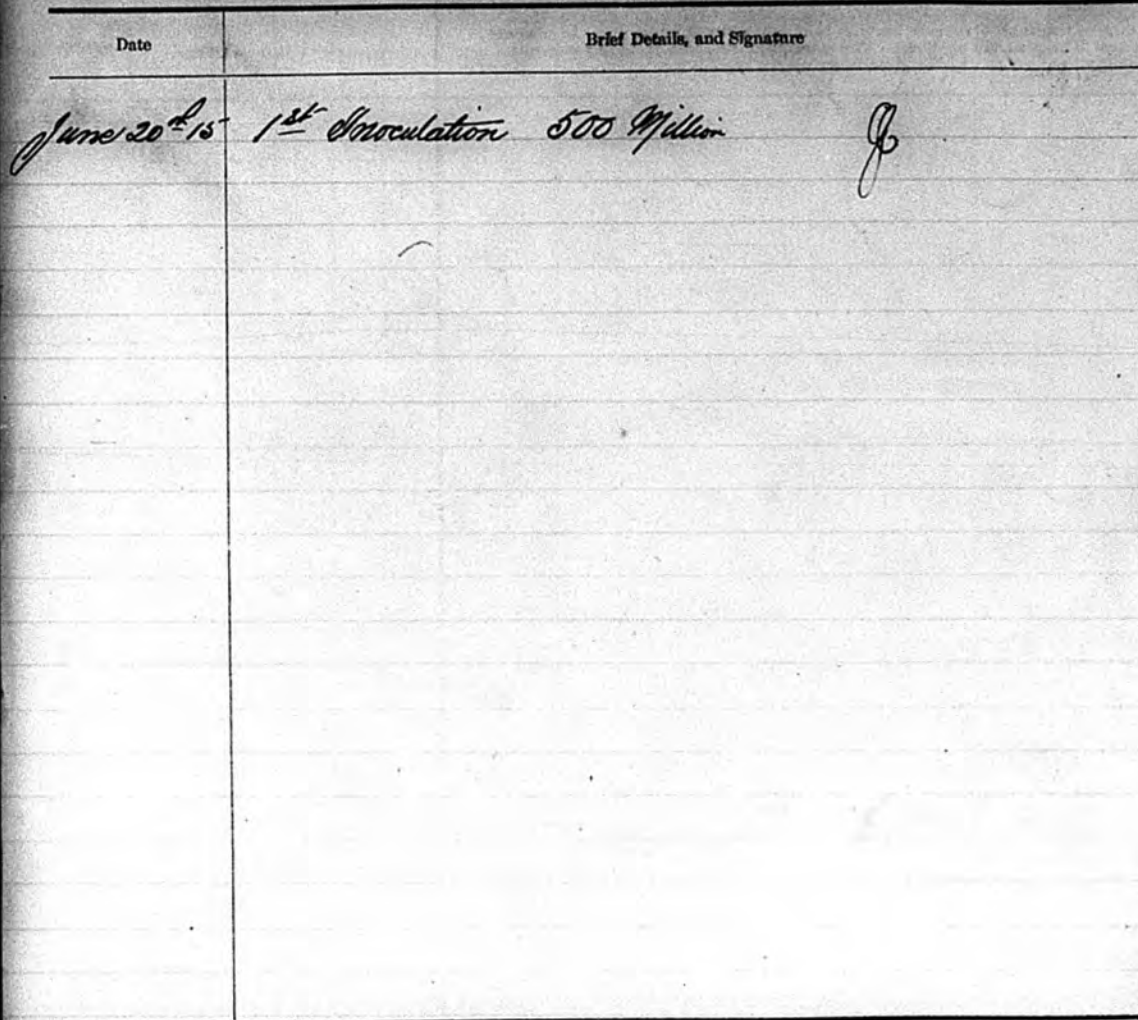 Date Brief Details, and Signature
June 20th 15 1st Inoculation 500 Million